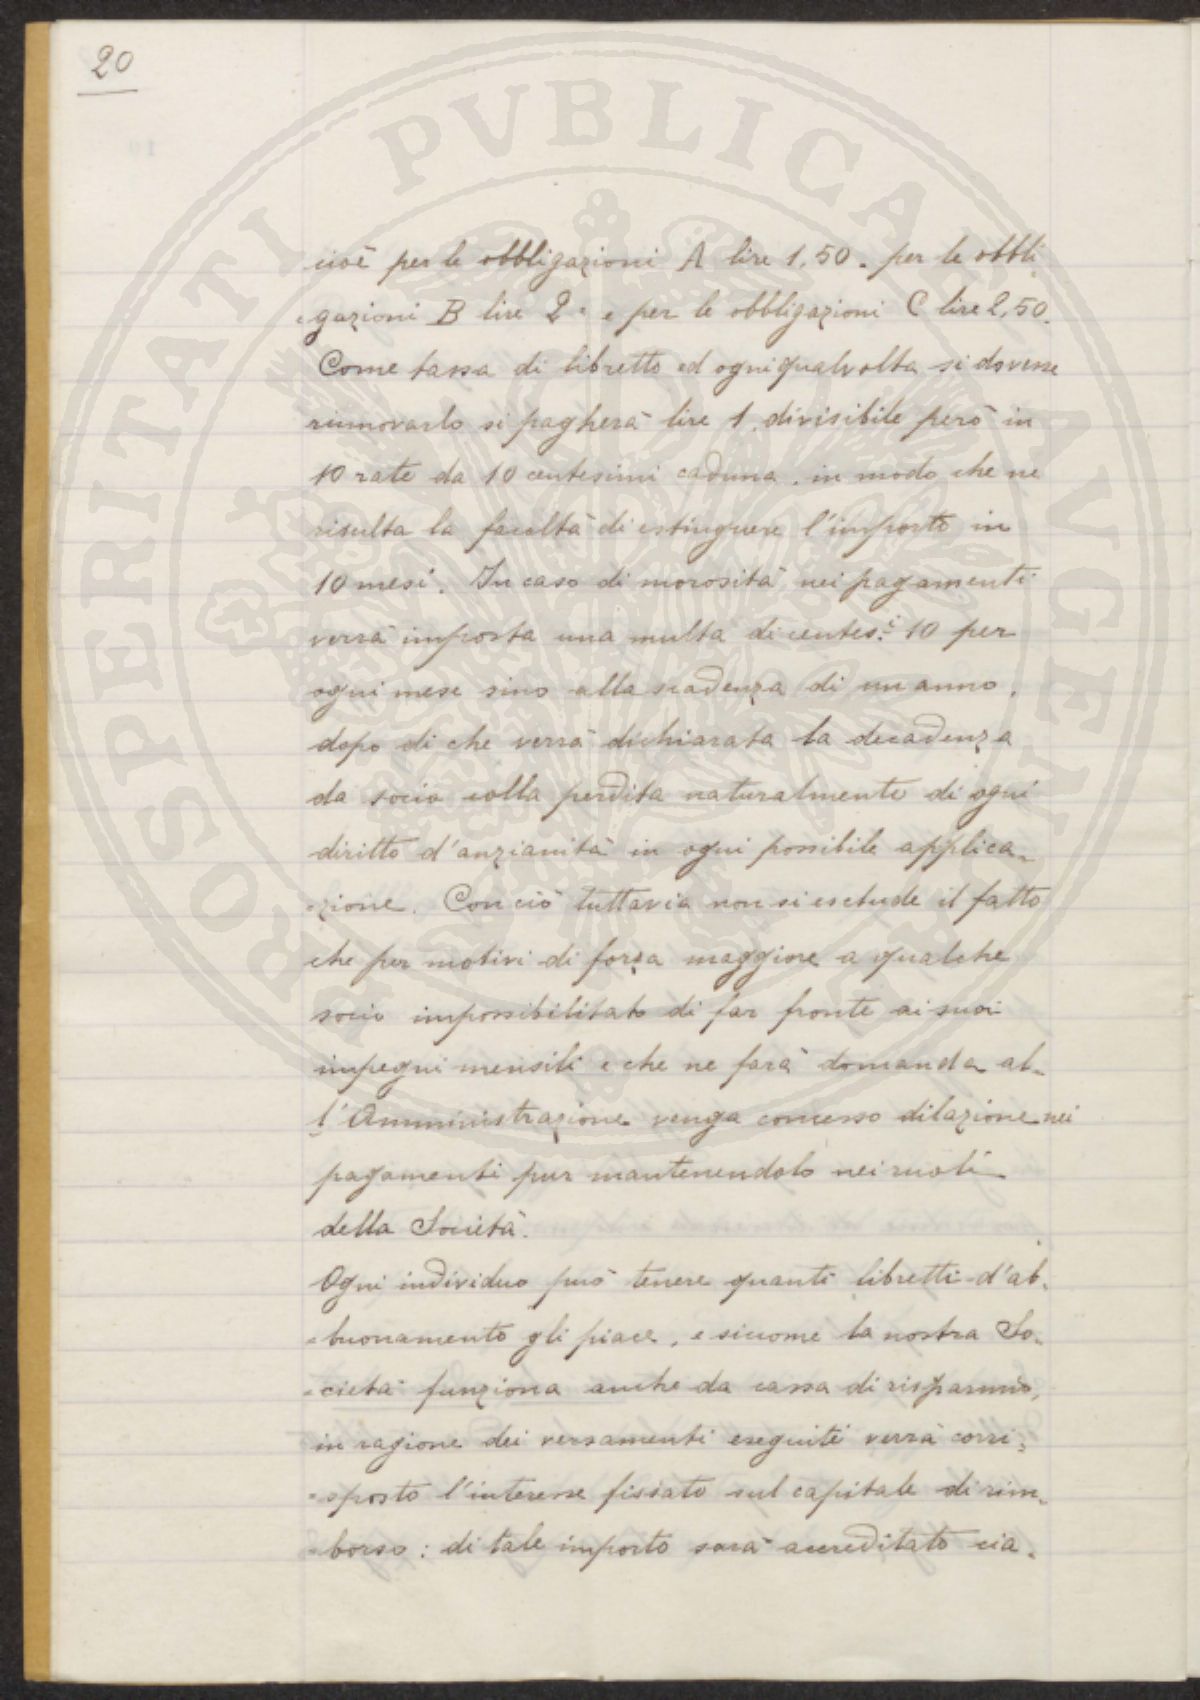 20
cioè per le obbligazioni A lire 1,50. per le obbli
gazioni B lire 2 " e per le obbligazioni C lire 2,50.
Come tassa di libretto ed ogniqualvolta si dovesse
rinnovarlo si pagherà lire 1, divisibile però in
10 rate da 10 centesimi caduna, in modo che ne
risulta la facoltà di estinguere l'importo in
10 mesi. In caso di morosità nei pagamenti
verrà imposta una multa di centes.i 10 per
ogni mese sino alla scadenza di un anno,
dopo di che verrà dichiarata la decadenza
da socio colla perdita naturalmente di ogni
diritto d'anzianità in ogni possibile applica=
=zione. Con ciò tuttavia non si esclude il fatto
che per motivi di forza maggiore a qualche
socio impossibilitato di far fronte ai suoi
impegni mensili e che ne farà domanda al=
l'Amministrazione venga concesso dilazione nei
pagamenti pur mantenendolo nei ruoli
della Società.
Ogni individuo può tenere quanti libretti d'ab=
=buonamento gli piace, e siccome la nostra So=
=cietà funziona anche da cassa di risparmio,
in ragione dei versamenti eseguiti verrà corri=
=sposto l'interesse fissato sul capitale di rim=
=borso: di tale importo sarà accreditato cia=
PROSPERITATI PVBLICAE AVGENDAE